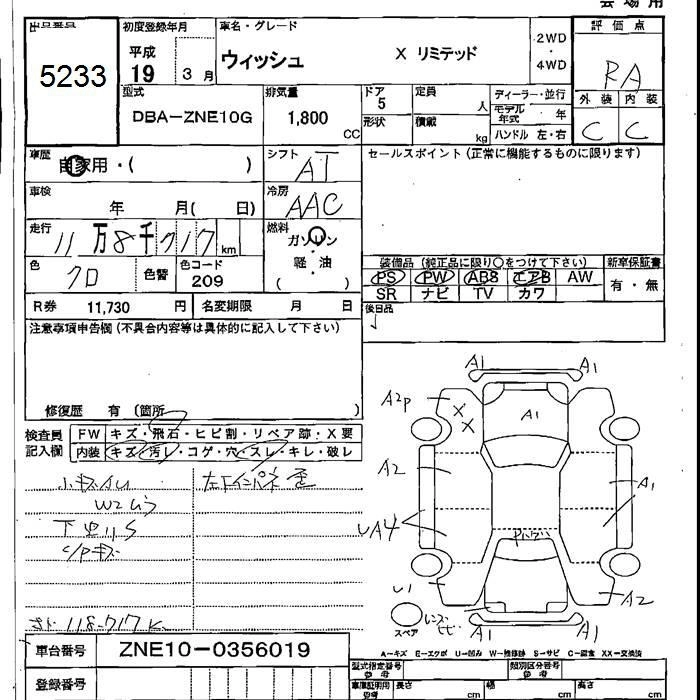 会場用
出品番号 5233
初度登録年月 平成 19 3月
車名・グレード ウィッシュ X リミテッド
2WD・4WD
評価点 RA
外装 C 内装 C
型式 DBA-ZNE10G
排気量 1,800 CC
ドア 5
形状
定員 人
積載 kg
ディーラー・並行
モデル年式 年
ハンドル 左・右
車歴 自家用・( )
シフト AT
セールスポイント(正常に機能するものに限ります)
車検 年 月( 日)
冷房 AAC
走行 11万8千717km
燃料 ガソリン 軽・油 ( )
色 クロ 色替 色コード 209
装備品(純正品に限り○をつけて下さい) 新車保証書
PS PW ABS エアB AW 有・無
SR ナビ TV カワ
R券 11,730 円 名変期限 月 日
後日品
注意事項申告欄(不具合内容等は具体的に記入して下さい)
修復歴 有 (箇所 )
検査員記入欄
FW キズ・飛石・ヒビ割・リペア跡・X要
内装 キズ・汚レ・コゲ・穴・スレ・キレ・破レ
小キズAU 左下インパネ歪
下廻りS
C/Pキズ
118-717K
A1 A1
A2P
X X
A1
A2
A1
UA4
U1
A2
A1 A1
スペア
A-キズ E-エクボ U-凹み W-補修跡 S-サビ C-腐食 XX-交換済
車台番号 ZNE10-0356019
型式指定番号 参考
類別区分番号 参考
登録番号
車庫証明用 参考 長さ cm 幅 cm 高さ cm